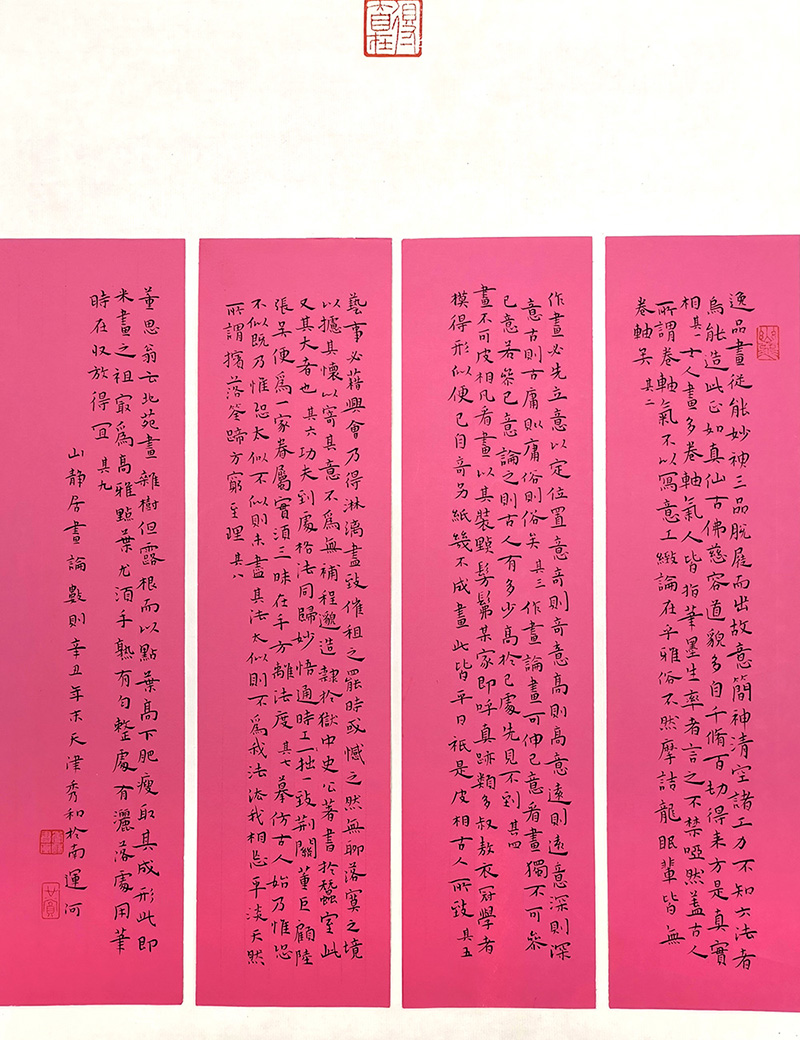 逸品畫從能妙神三品脫屣而出故意簡神清空諸工力不知六法者
烏能造此正如真仙古佛慈容道貌多自千脩百劫得來方是真實
相其一士人畫多卷軸氣人皆指筆墨生率者言之不禁啞然蓋古人
所謂卷軸氣不以寫意工緻論在乎雅俗不然摩詰龍眠輩皆無
卷軸矣 其二
作畫必先立意以定位置意奇則奇意高則高意遠則遠意深則深
意古則古庸則庸俗則俗矣 其三 作畫論畫可伸己意看畫獨不可參
己意若參己意論之則古人有多少高於己處先見不到 其四
畫不可皮相凡看畫以其裝點髣髴某家即呼真跡類多叔敖衣冠學者
模得形似便已自奇另紙幾不成畫此皆平日祇是皮相古人所致 其五
藝事必藉興會乃得淋漓盡致催租之罷時或憾之然無聊落寞之境
以攄其懷以寄其意不為無補程邈造隸於獄中史公著書於蠶室此
又其大者也 其六 功夫到處格法同歸妙悟通時工拙一致荊關董巨顧陸
張吳便為一家眷屬實須三昧在手方離法度 其七 摹仿古人始乃惟恐
不似既乃惟恐太似不似則未盡其法太似則不為我法法我相忘平淡天然
所謂擯落筌蹄方窮至理 其八
董思翁云北苑畫雜樹但露根而以點葉高下肥瘦取其成形此即
米畫之祖寂為高雅點葉尤須手熟有勻整處有灑落處用筆
時在收放得宜 其九
山靜居畫論數則辛丑年末天津秀和於南運河